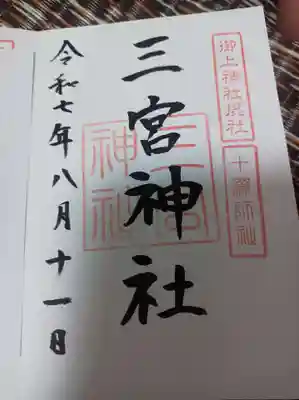 御上神社兼務社
十禅師社
三宮神社
三宮
神社
令和七年八月十一日